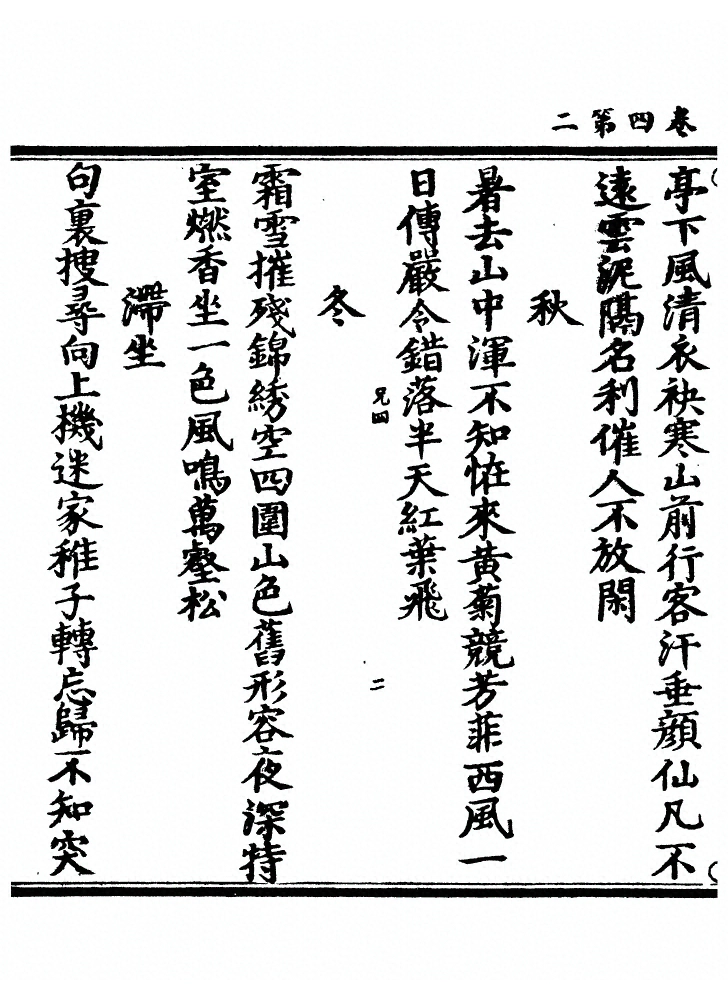 卷四第二
亭下風清衣袂寒山前行客汗垂顔仙凡不
遠雲泥隔名利催人不放閑
秋
暑去山中渾不知恠來黄菊競芳菲西風一
日傳嚴令錯落半天紅葉飛
兄四
二
冬
霜雪摧殘錦綉空四圍山色舊形容夜深特
室燃香坐一色風鳴萬壑松
滯坐
句裏搜尋向上機迷家稚子轉忘歸不知突